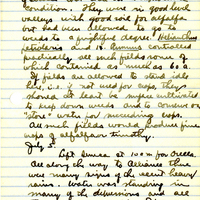 condition. They were in good level
valleys with good soil for alfalfa
but had been allowed to go to
weeds to a frightful degree. Helianthus
petiolaris and H. annuus controlled
practically all such fields some of
which contained as much as 60 a.
If fields are allowed to stand idle
here, i.e. if not used for crops they
should at least be super cultivated
to keep down weeds and to conserve or
"store" water for succeeding crops.
All such fields would produce fine
crops of alfalfa or timothy.
July 5.
Left Lunea at 10 am for Orella.
All along the way to Alliance there
were many signs of the recent heavy
rains. Water was standing in
many of the depressions and all